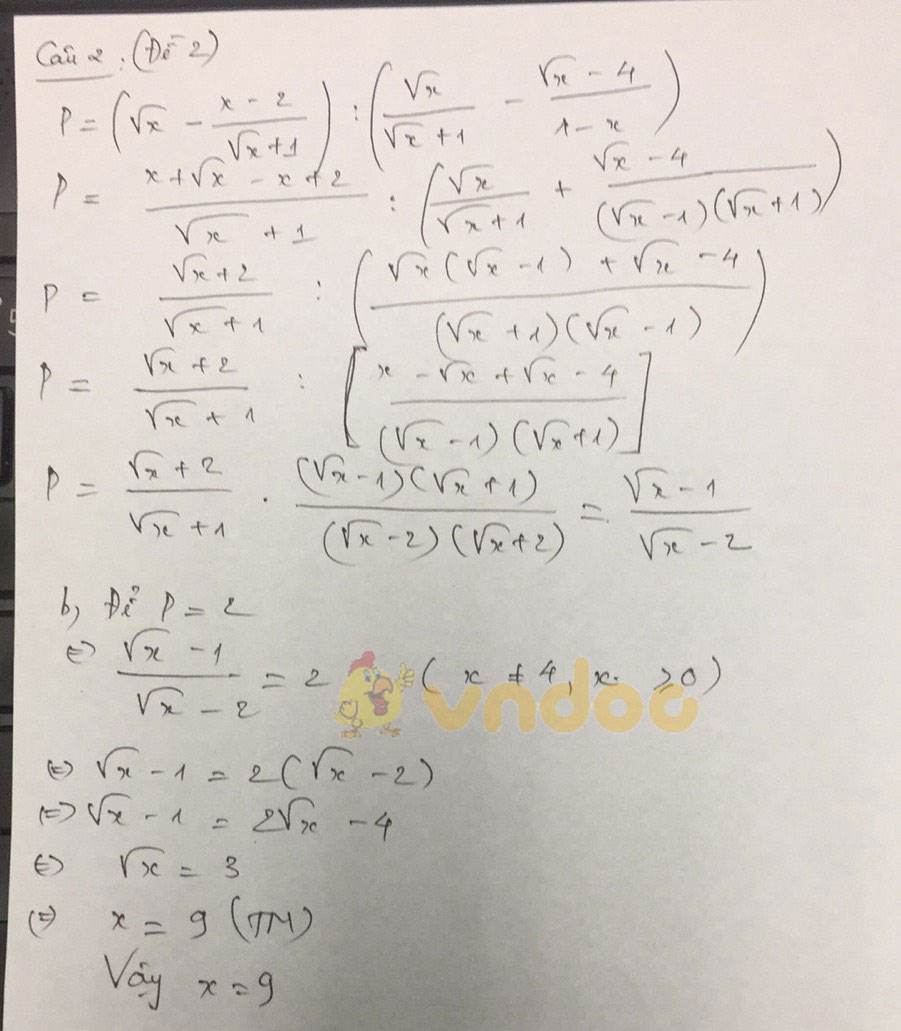 Câu 2: (Đề 2)
P = (√x - (x - 2)/(√x + 1)) : (√x/(√x + 1) - (√x - 4)/(1 - x))
P = (x + √x - x + 2)/(√x + 1) : (√x/(√x + 1) + (√x - 4)/((√x - 1)(√x + 1)))
P = (√x + 2)/(√x + 1) : ((√x(√x - 1) + √x - 4)/((√x + 1)(√x - 1)))
P = (√x + 2)/(√x + 1) : [(x - √x + √x - 4)/((√x - 1)(√x + 1))]
P = (√x + 2)/(√x + 1) . ((√x - 1)(√x + 1))/((√x - 2)(√x + 2)) = (√x - 1)/(√x - 2)
b, Để P = 2
⇔ (√x - 1)/(√x - 2) = 2 (x ≠ 4, x ≥ 0)
vndoc
⇔ √x - 1 = 2(√x - 2)
⇔ √x - 1 = 2√x - 4
⇔ √x = 3
⇔ x = 9 (TM)
Vậy x = 9